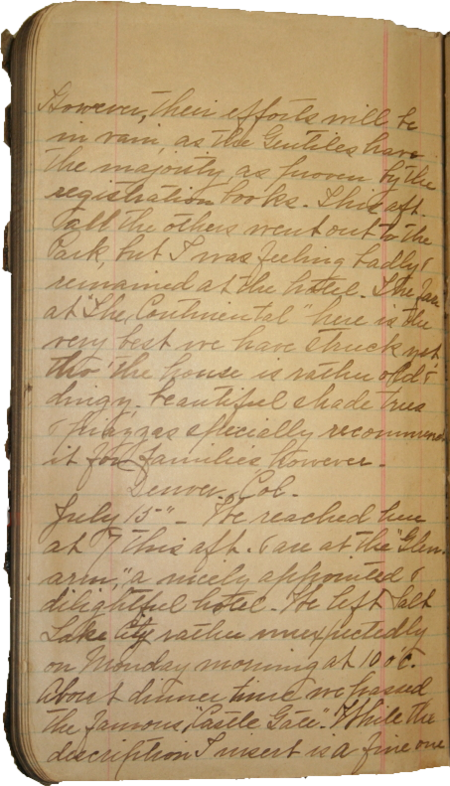 However, their efforts will be
in vain, as the Gentiles have
the majority, as proven by the
registration books. This aft.
all the others went out to the
Park, but I was feeling badly &
remained at the hotel. The fare
at "The Continental" here is the
very best we have struck yet
tho' the house is rather old &
dingy. Beautiful shade trees
& piazzas especially recommend
it for families however.
Denver, Col.
July 15" - We reached here
at 7 this aft. & are at the "Glen-
arm," a nicely appointed &
dilightful hotel. We left Salt
Lake City rather unexpectedly
on Monday morning at 10 o'c.
About dinner time we passed
the famous, "Castle Gate". While the
description I insert is a fine one